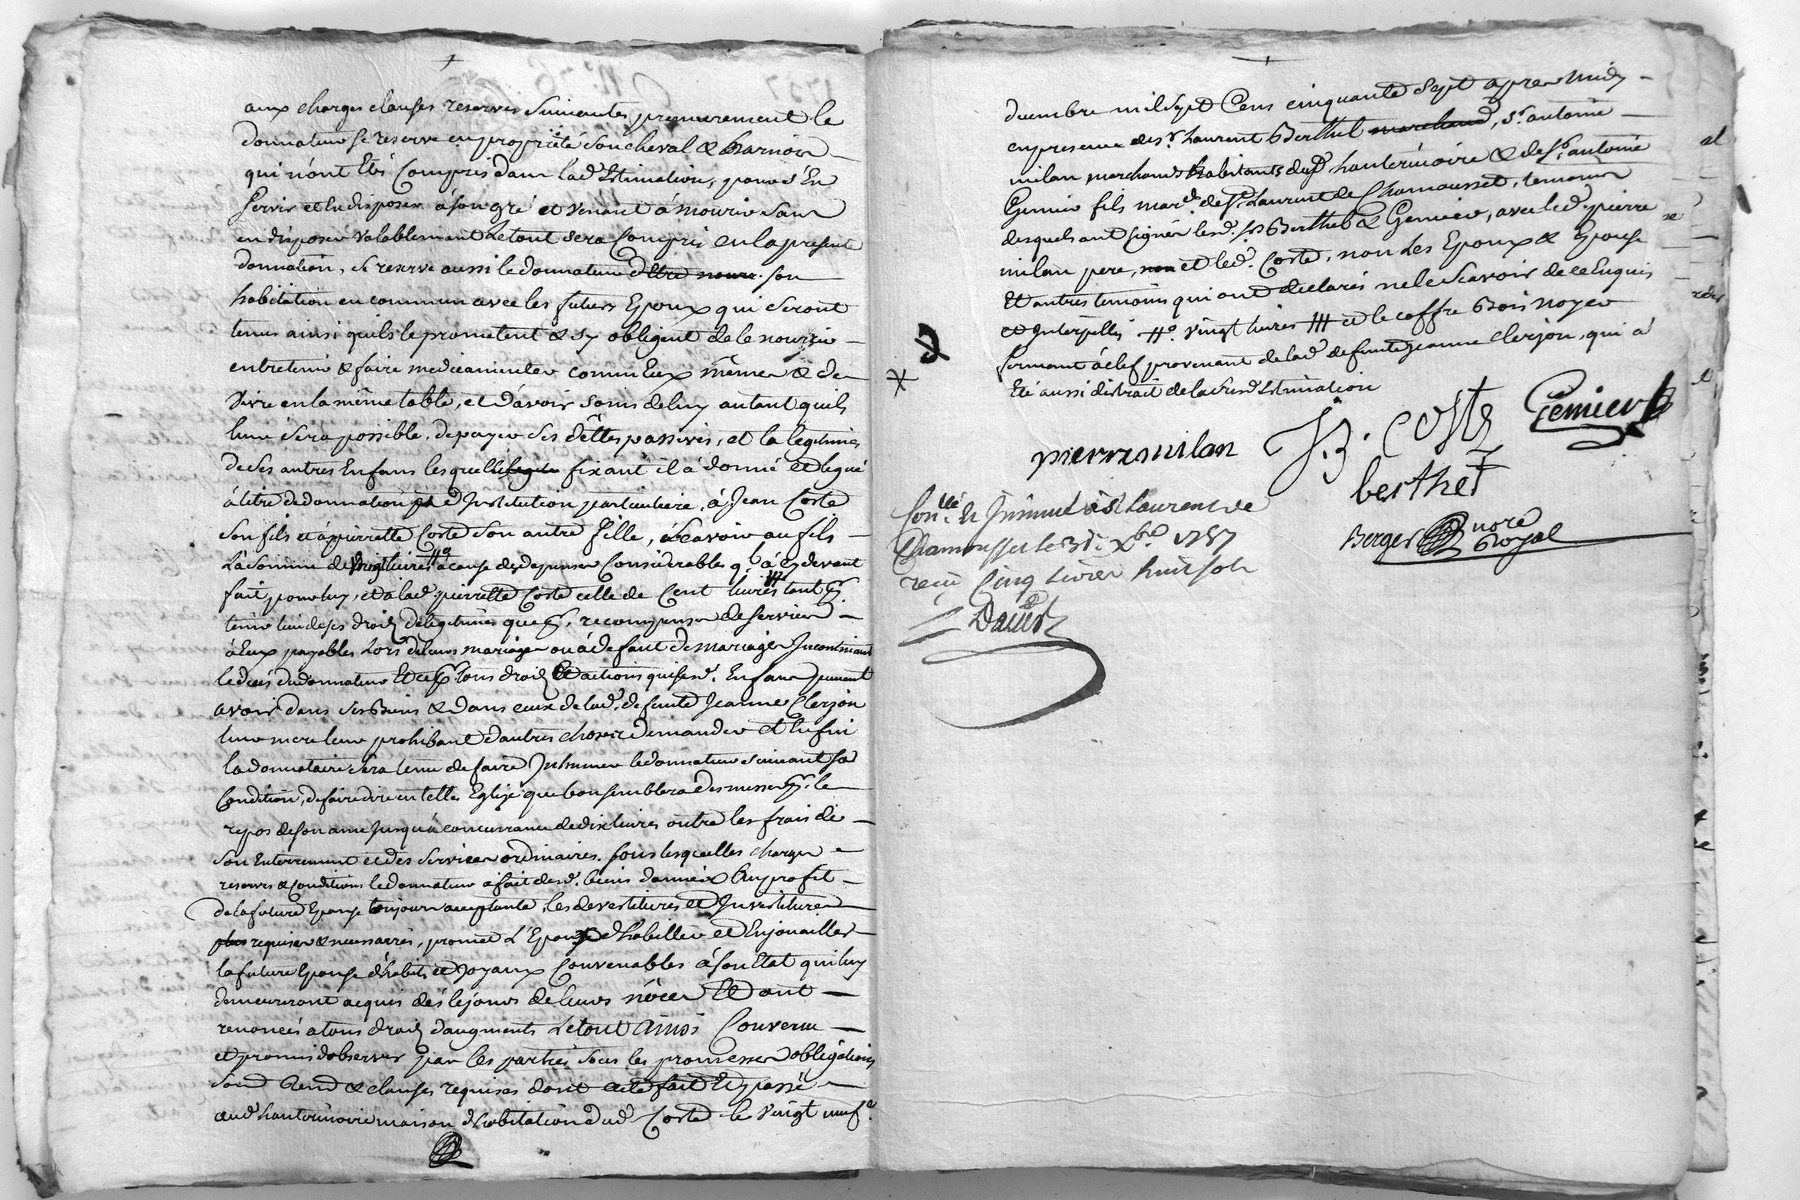 aux charges clauses reserves suivantes, premierement le
donnateur se reserve en propriété son cheval & harnois
qui n'ont Etés Compris dans lad. Estimation, pour s'En
servir et En disposer à son gré et venant à mourir sans
en disposer valablement le tout sera Compris en la presente
donnation, se reserve aussi le donnateur d'Etre nourri son
habitation en commun avec les futurs Epoux qui seront
tenus ainsi quils le promettent & s'y obligent de le nourrir
entretenir & faire medicamenter comme Eux mêmes & de
vivre en la même table, et d'avoir soins de luy autant quils
leur sera possible, de payer ses dêttes passives, et la legitime
de ses autres Enfans fixant il à donné et legué
à titre de donnation et d'Institution particuliere, à Jean Coste
son fils et à pierrette Coste son autre fille, à scavoir au fils
La somme de vingt livres à cause des depenses Considerables q. à Cy devant
fait pour luy, et à lad. pierrette Coste celle de Cent livres tant p.
tenir lieu de ses droits de legitime que p. recompense de services
à Eux payables Lors de leurs mariages ou à defaut de mariages Incontinant
le deces du donnateur Et ce p. tous droits Et actions que sesd. Enfans peuvent
avoir dans ses Biens & dans ceux de lad. defunte Jeanne Clerjon
leur mere leur prohibant d'autres choses demander et Enfin
la donnataire sera tenue de faire Inhumer le donnateur suivant sa
Condition, de faire dire en telle Eglise que bon semblera des messes p. le
repos de son ame Jusqu'à concurrance de dix livres outre les frais de
son Enterrement et des services ordinaires. sous lesquelles charges
reserves & Conditions le donnateur à fait desd. biens donnés Au profit
de la future Epouse toujours acceptante, les devestitures et Investitures
plus requises & necessaires, promet L'Epoux d'habiller et Enjouailler
la future Epouse d'habits et Joyaux Convenables à son Etat qui luy
demeureront acquis dés le jours de leurs nôces Et ont
renoncés a tous droits d'augments Le tout Ainsi Convenu
et promis d'observer par les parties sous les promesses obligations
soumd. Rend. & clauses requises dont acte fait Et passé
aud. hauterivoire maison d'habitation dud. Coste le vingt neuf.
decembre mil sept Cens cinquante sept apres midy
en presence de s.r Laurent Berthet marchand, s.r antoine
milan marchands habitants dud. hauterivoire & de s.r antoine
Gemier fils march. de S.t Laurent de Chamousset, temoins
desquels ont signés lesd. s.rs Berthet & Gemier, avec led. pierre
milan pere, non et led. Coste, non Les Epoux & Epouse
Et autres temoins qui ont declarés ne le scavoir de ce Enquis
et Interpellés #° vingt livres ### et le coffre Bois noyer
fermant à clef provenant de lad. defunte Jeanne Clerjon, qui à
Eté aussi distrait de la susd. Estimation
pierre milan J. B. COSTE Gemier
berthet
Berger nore Royal
Con.llé Et Insinué à S.t Laurent de
Chamousset le 31.e Xbre 1757
reçu Cinq livres huit sols